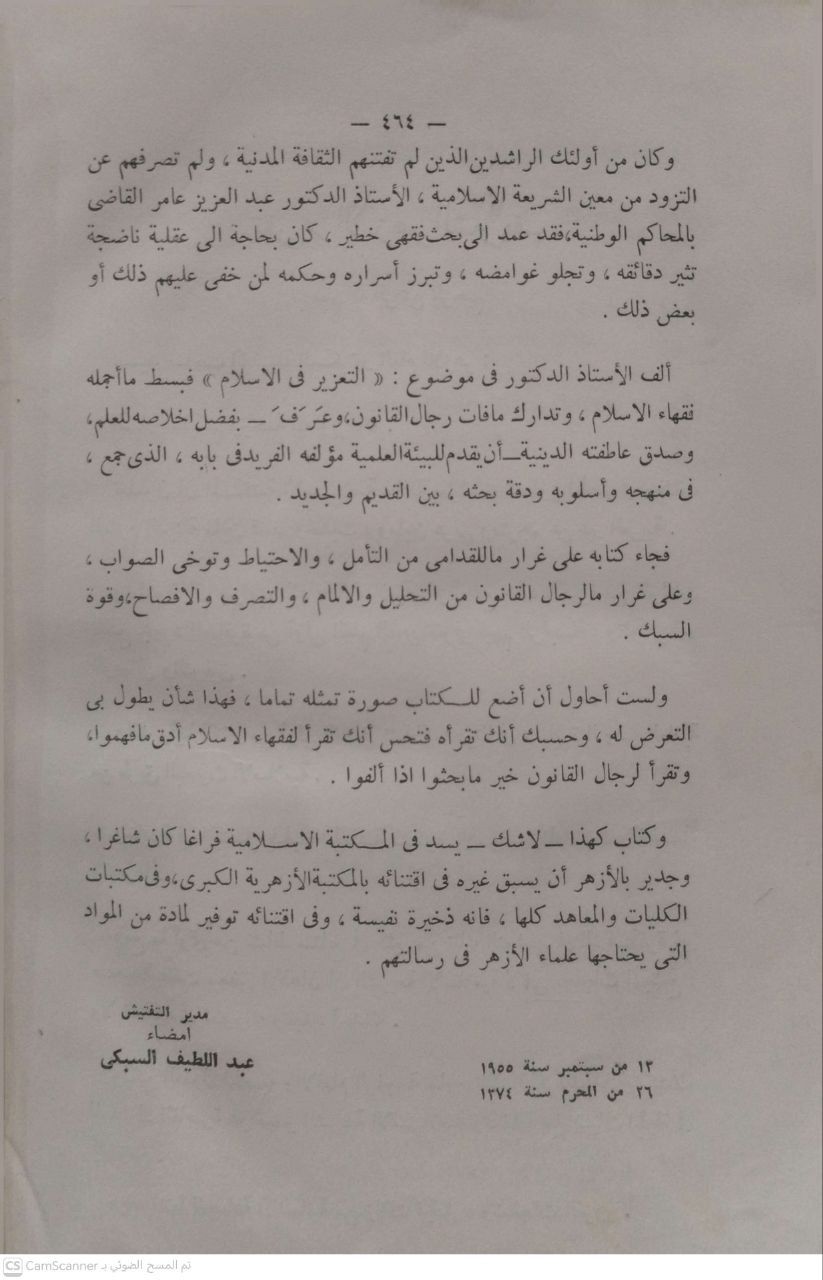 — ٤٦٤ —
وكان من أولئك الراشدين الذين لم تفتنهم الثقافة المدنية ، ولم تصرفهم عن
التزود من معين الشريعة الاسلامية ، الأستاذ الدكتور عبد العزيز عامر القاضى
بالمحاكم الوطنية،فقد عمد الى بحث فقهى خطير ، كان بحاجة الى عقلية ناضجة
تثير دقائقه ، وتجلو غوامضه ، وتبرز أسراره وحكمه لمن خفى عليهم ذلك أو
بعض ذلك .
ألف الأستاذ الدكتور فى موضوع : « التعزير فى الاسلام » فبسط ماأجمله
فقهاء الاسلام ، وتدارك مافات رجال القانون،وعَرَفَ — بفضل اخلاصه للعلم،
وصدق عاطفته الدينية—أن يقدم للبيئة العلمية مؤلفه الفريد فى بابه ، الذى جمع ،
فى منهجه وأسلوبه ودقة بحثه ، بين القديم والجديد .
فجاء كتابه على غرار ماللقدامى من التأمل ، والاحتياط وتوخى الصواب ،
وعلى غرار مالرجال القانون من التحليل والالمام ، والتصرف والافصاح،وقوة
السبك .
ولست أحاول أن أضع للكتاب صورة تمثله تماما ، فهذا شأن يطول بى
التعرض له ، وحسبك أنك تقرأه فتحس أنك تقرأ لفقهاء الاسلام أدق مافهموا،
وتقرأ لرجال القانون خير مابحثوا اذا ألفوا .
وكتاب كهذا — لاشك — يسد فى المكتبة الاسلامية فراغا كان شاغرا ،
وجدير بالأزهر أن يسبق غيره فى اقتنائه بالمكتبة الأزهرية الكبرى،وفى مكتبات
الكليات والمعاهد كلها ، فانه ذخيرة نفيسة ، وفى اقتنائه توفير لمادة من المواد
التى يحتاجها علماء الأزهر فى رسالتهم .
مدير التفتيش
امضاء
عبد اللطيف السبكى
١٣ من سبتمبر سنة ١٩٥٥
٢٦ من المحرم سنة ١٣٧٤
CS CamScanner تم المسح الضوئي بـ